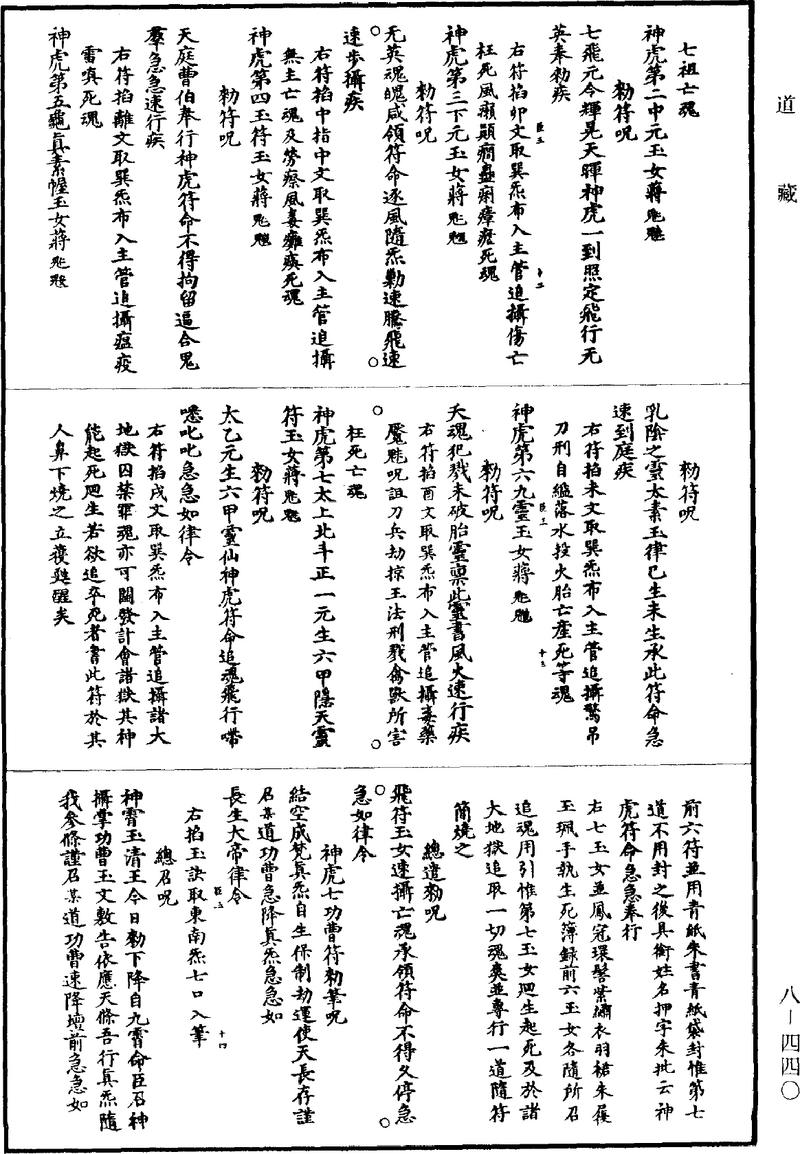 道藏
七祖亡魂
神虎第二中元玉女蔣
勑符呪
七飛元今輝晃天暉神虎一到照定飛行无
英奉勑疾
右符掐卯文取巽炁布入主管追攝傷亡
枉死風癩顛癇蠱痢瘴瘧死魂
神虎第三下元玉女蔣
勑符呪
无英魂魄咸領符命逐風隨炁勦速騰飛速
速步攝疾
右符掐中指中文取巽炁布入主管追攝
無主亡魂及勞瘵風毒癱瘓死魂
神虎第四玉符玉女蔣
勑符呪
天庭曹伯奉行神虎符命不得拘留逼合鬼
羣急急速行疾
右符掐離文取巽炁布入主管追攝瘟疫
雷嗔死魂
神虎第五真素幄玉女蔣
勑符呪
乳陰之靈太素玉律已生未生承此符命急
速到庭疾
右符掐未文取巽炁布入主管追攝驚吊
刀刑自縊落水投火胎亡產死等魂
神虎第六九靈玉女蔣
勑符呪
夭魂犯戮未破胎靈稟此靈書風火速行疾
右符掐酉文取巽炁布入主管追攝毒藥
魘魅呪詛刀兵劫掠王法刑戮禽獸所害
枉死亡魂
神虎第七太上北斗正一元生六甲隱天靈
符玉女蔣
勑符呪
太乙元生六甲靈仙神虎符命追魂飛行啼
噁叱叱急急如律令
右符掐戌文取巽炁布入主管追攝諸大
地獄囚禁罪魂亦可關發計會諸獄其神
能起死迴生若欲追卒死者書此符於其
人鼻下燒之立復甦醒矣
前六符並用青紙朱書青紙袋封惟第七
道不用封之後具銜姓名押字朱批云神
虎符命急急奉行
右七玉女並鳳冠環髻紫繡衣羽裙朱履
玉珮手執生死簿録前六玉女各隨所召
追魂用引惟第七玉女迴生起死及於諸
大地獄追取一切魂爽並專行一道隨符
簡燒之
總遣勑呪
飛符玉女速攝亡魂承領符命不得久停急
急如律令
神虎七功曹符勑筆呪
結空成梵真炁自生保制劫運使天長存謹
召某道功曹急降真炁急急如
長生大帝律令
右掐玉訣取東南炁七口入筆
總召呪
神霄玉清王今日勑下降自九霄命臣召神
攝掌功曹玉文敷告依應天條吾行真炁隨
我參條謹召某道功曹速降壇前急急如
八－四四〇